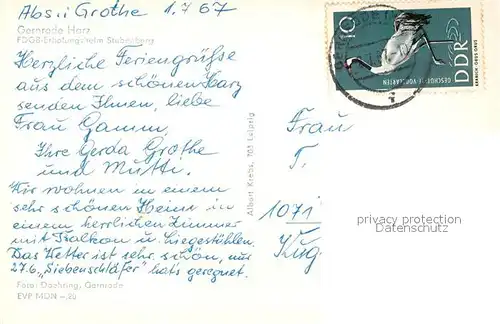 Abs.: Grothe 1.7.67
Gernrode Harz
FDGB-Erholungsheim Stubenberg
Herzliche Feriengrüße
aus dem schönen Harz
senden Ihnen, liebe
Frau Gamm,
Ihre Gerda Grothe
und Mutti.
Wir wohnen in einem
sehr schönen Heim in
einem herrlichen Zimmer
mit Balkon u. Liegestühlen.
Das Wetter ist sehr schön, nur
27.6. „Siebenschläfer" hat's geregnet.
Foto: Daehring, Gernrode
EVP MDN -,20
Albert Krebs, 705 Leipzig
10
DDR
GESCHÜTZTE VOGELARTEN
KRANICH · GRUS GRUS
GERNRODE
Frau
T.
1071
privacy protection
Datenschutz